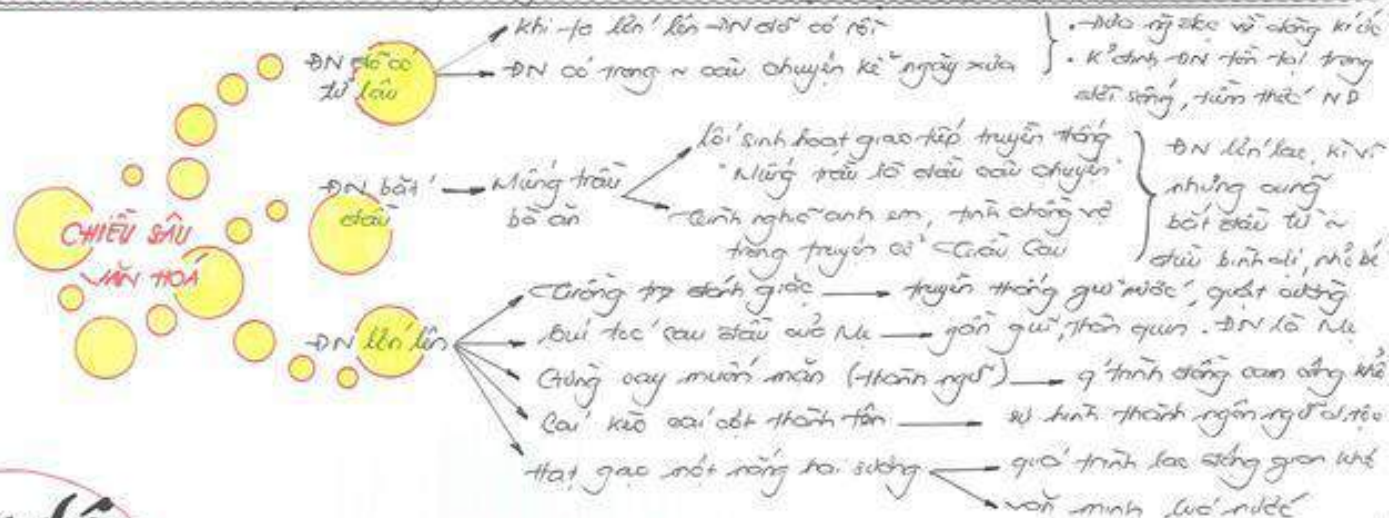 CHIỀU SÂU
VĂN HOÁ
ĐN đã có
từ lâu
Khi ta lớn lên ĐN đã có rồi
ĐN có trong ~ câu chuyện kể ngày xưa
. Đưa ng đọc về dòng kí ức
. K định ĐN tồn tại trong
đời sống, tiềm thức ND
ĐN bắt
đầu
Miếng trầu
bà ăn
lối sinh hoạt giao tiếp truyền thống
"Miếng trầu là đầu câu chuyện"
Tình nghĩa anh em, tình chồng vợ
trong truyện cổ Trầu Cau
ĐN lớn lao, kì vĩ
nhưng cũng
bắt đầu từ ~
điều bình dị, nhỏ bé
ĐN lớn lên
Trồng tre đánh giặc
truyền thống giữ nước, quật cường
Búi tóc sau đầu của Mẹ
gần gũi, thân quen. ĐN là Mẹ
Gừng cay muối mặn (thành ngữ)
q trình đồng cam cộng khổ
Cái kèo cái cột thành tên
sự hình thành ngôn ngữ d.tộc
Hạt gạo một nắng hai sương
quá trình lao động gian khổ
văn minh lúa nước